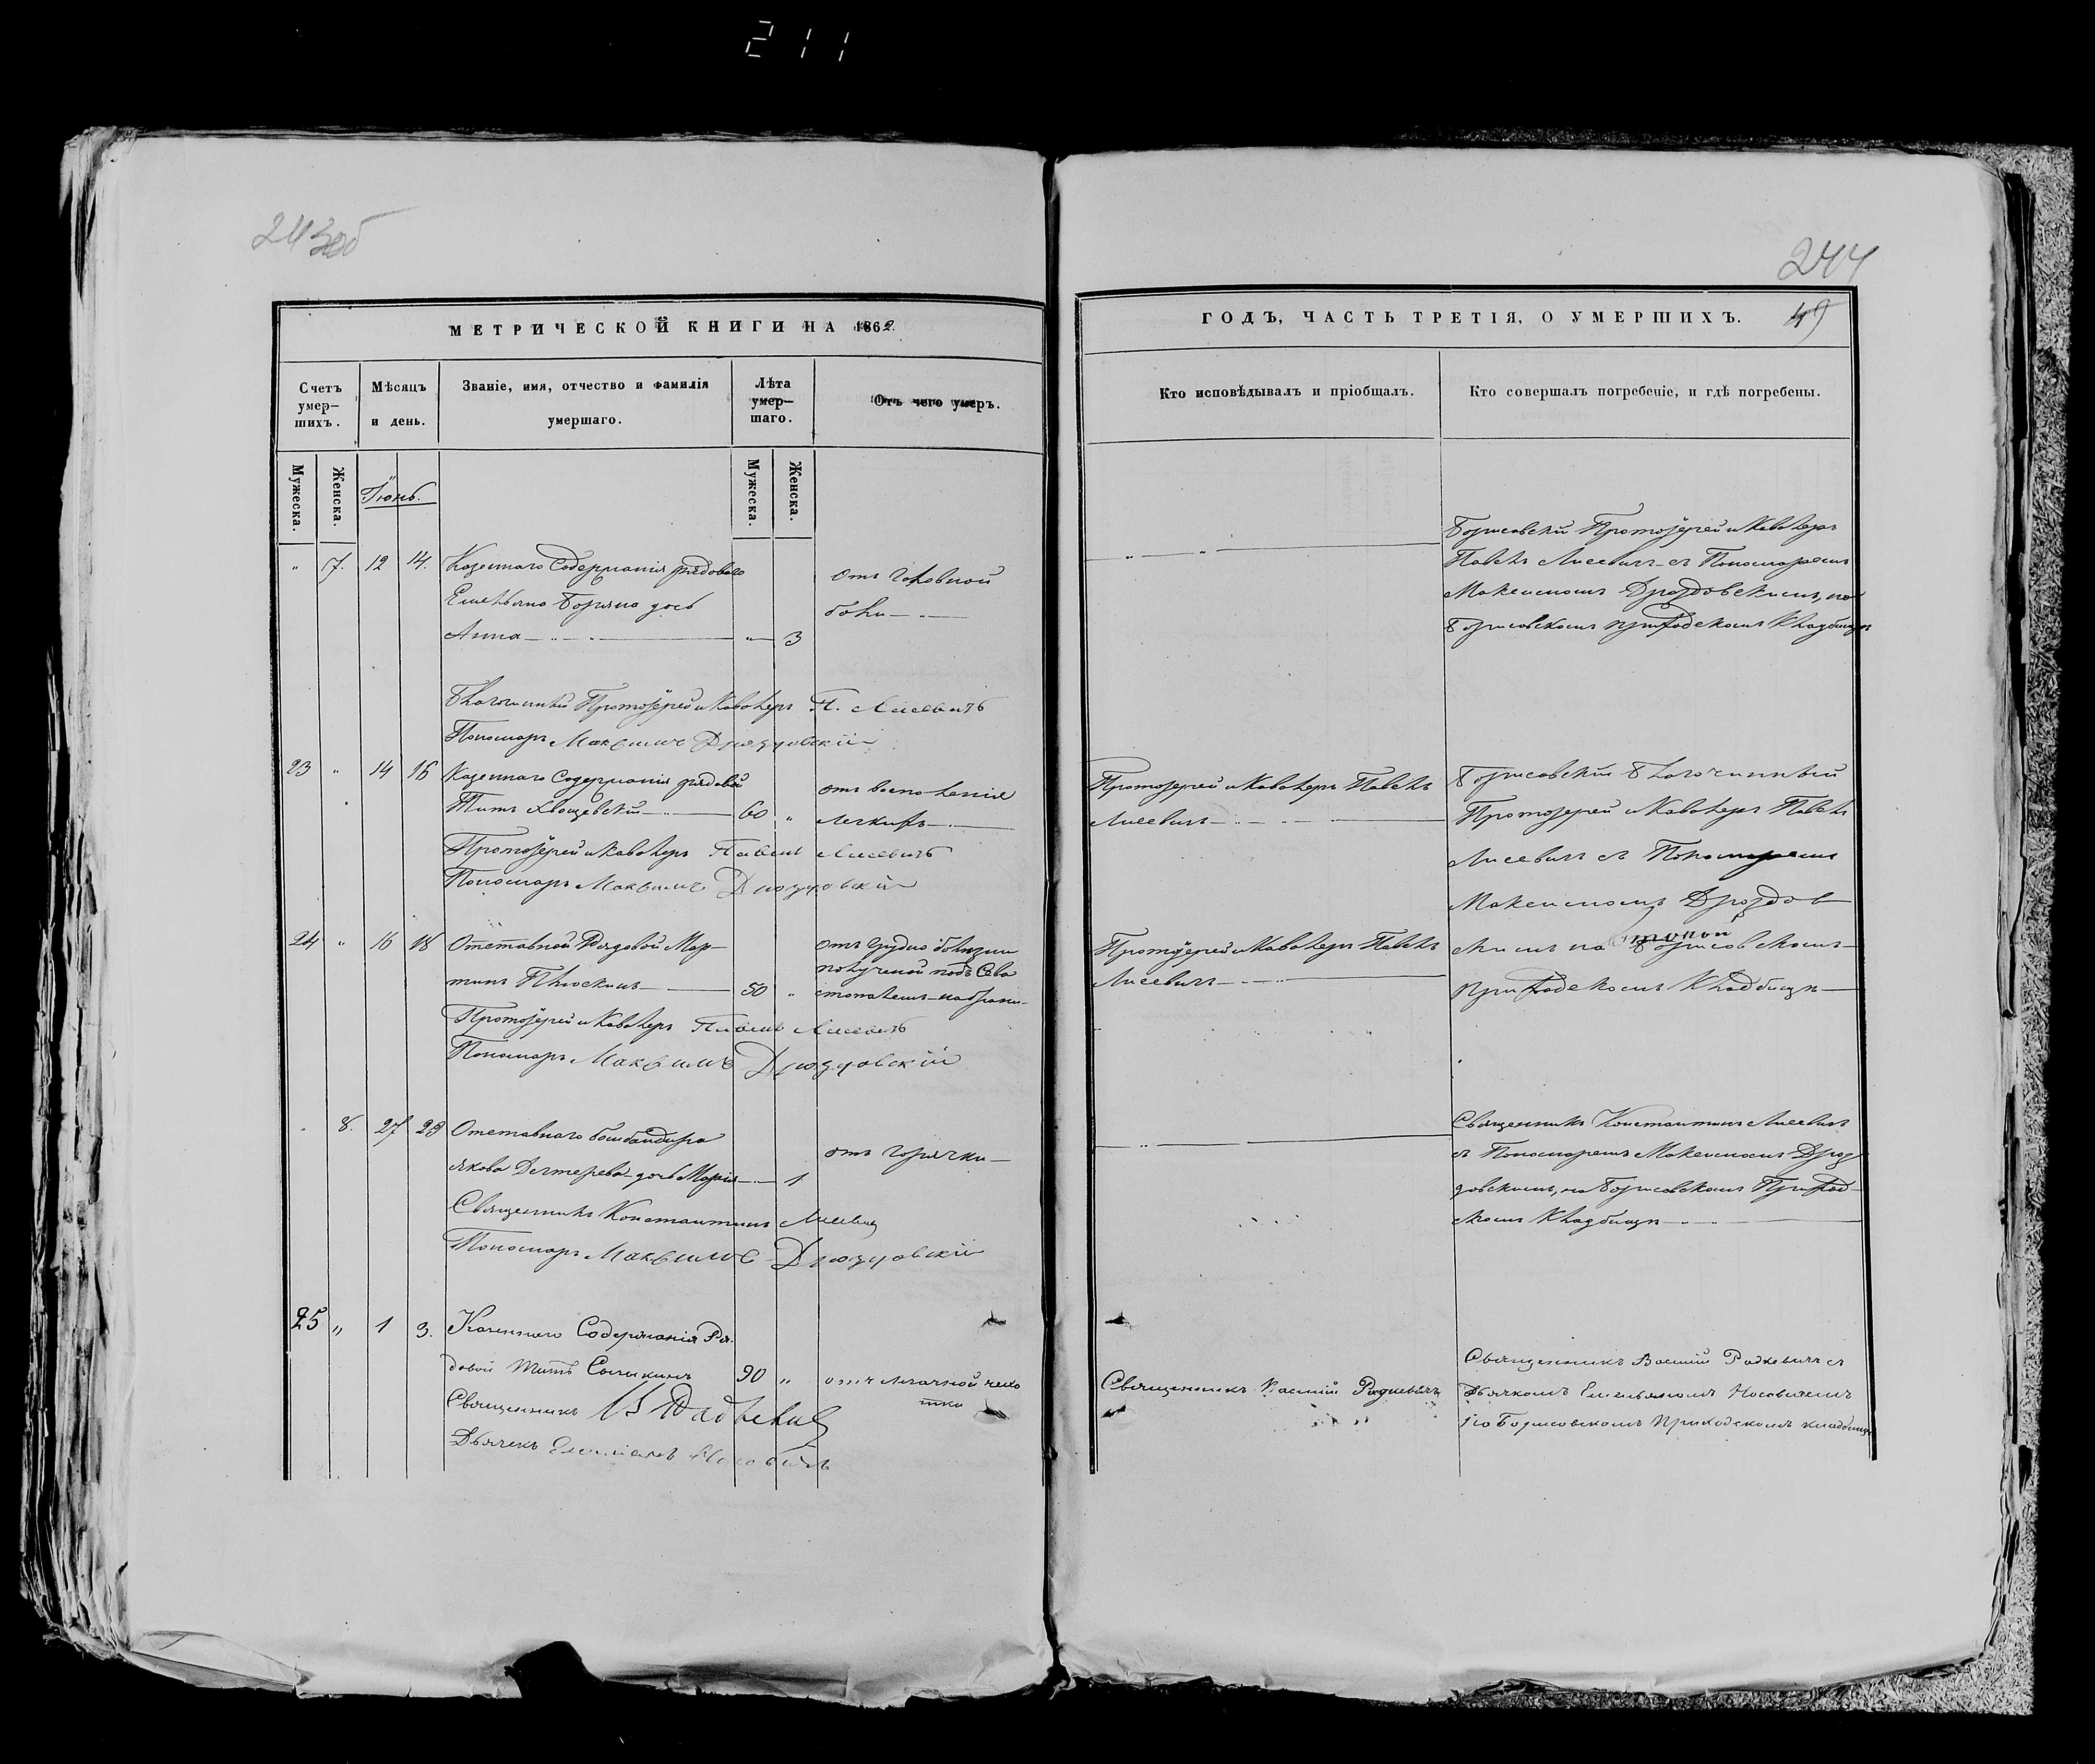 211
243об
244
МЕТРИЧЕСКОЙ КНИГИ НА 1862.
ГОДЪ, ЧАСТЬ ТРЕТІЯ, О УМЕРШИХЪ.
49
Счетъ умер-шихъ.
Мѣсяцъ и день.
Званіе, имя, отчество и фамилія умершаго.
Лѣта умер-шаго.
Отъ чего умеръ.
Кто исповѣдывалъ и пріобщалъ.
Кто совершалъ погребеніе, и гдѣ погребены.
Мужеска.
Женска.
Іюнь.
Мужеска.
Женска.
" 7. 12 14. Казеннаго Содержанія рядового
Емельяна дочь
Анна 3
отъ головной
боли
Борисовскій Протоіерей и Кавалеръ
Павелъ Лисевичъ съ Пономаремъ
Максимомъ Дроздовскимъ, на
Борисовскомъ приходскомъ Кладбищѣ
Благочинный Протоіерей и Кавалеръ П. Лисевичъ
Пономарь Максимъ Дроздовскій
23 " 14 16 Казеннаго Содержанія рядовой
Титъ Хвощевскій 60 "
отъ воспаленія
легкихъ
Протоіерей и Кавалеръ Павелъ
Лисевичъ
Борисовскій Благочинный
Протоіерей и Кавалеръ Павелъ
Лисевичъ съ Пономаремъ
Максимомъ Дроздов
Протоіерей и Кавалеръ Павелъ Лисевичъ
Пономарь Максимъ Дроздовскій
24 " 16 18 Отставной Рядовой Мар-
тинъ Плюскинъ 50 "
отъ грудно болѣзни
полученой подъ Сева
стополемъ
Протоіерей и Кавалеръ Павелъ
Лисевичъ
скимъ на Борисовскомъ
Приходскомъ Кладбищѣ
Протоіерей и Кавалеръ Павелъ Лисевичъ
Пономарь Максимъ Дроздовскій
8. 27 29 Отставнаго бомбандира
Якова Дегтерева дочь Марія 1
отъ горячки
Священникъ Константинъ Лисевичъ
съ Пономаремъ Максимомъ Дроз
довскимъ, на Борисовскомъ Приход
скомъ Кладбищѣ
Священникъ Константинъ Лисевичъ
Пономарь Максимъ Дроздовскій
25 " 1 3. Казеннаго Содержанія Ря
довой Титъ 90 "
отъ чахо
тки
Священникъ Василій Радкевичъ
Священникъ Василій Радкевичъ съ
Дьячкомъ Емельяномъ Носовичемъ
на Борисовскомъ Приходскомъ кладбищѣ
Священникъ В Радкевичъ
Дьячекъ Емеліанъ Носовичъ